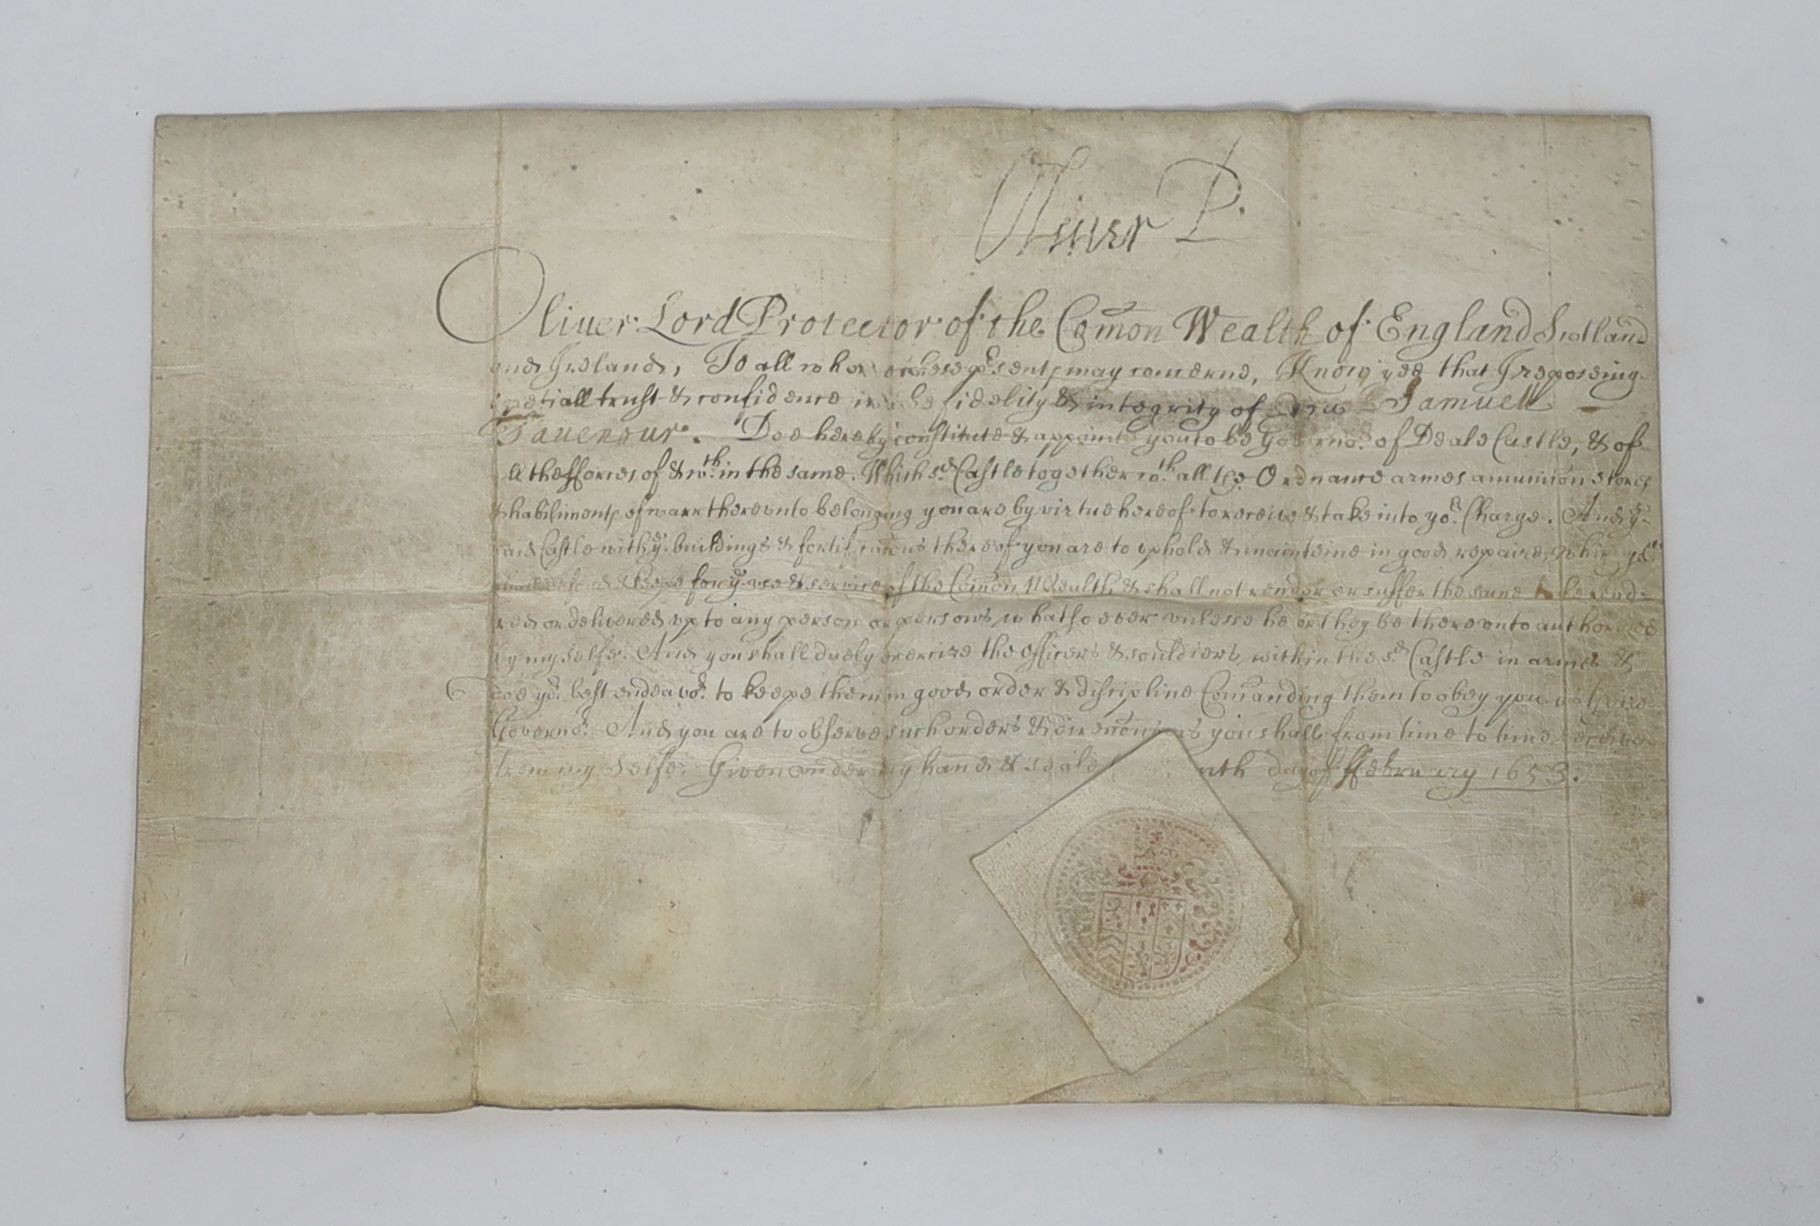 Oliver P.
Oliuer Lord Protector of the Com̄on Wealth of England Scotland
and Ireland, To all whom these pʳsents may concerne, Know yee that I reposeing
speciall trust & confidence in the fidelity & integrity of you Samuell
Tauernour. Doe hereby constitute & appoint you to be Governoʳ of Deale Castle, & of
all the fforces of & wᵗʰin the same. Which sᵈ Castle together wᵗʰ all the Ordnance armes amunicion stores
& habiliments of warr therevnto belonging you are by virtue hereof to receive & take into yoʳ Charge. And yᵉ
said Castle with yᵉ buildings & fortificacions thereof you are to vphold & mainteine in good repaire,
& keepe for yᵉ vse & service of the Com̄on Wealth, & shall not render or suffer the same to be rend-
red or delivered vp to any person or persons whatsoever vnlesse he or they be therevnto authorized
by my selfe. And you shall duely exercize the officers & souldiers within the sᵈ Castle in armes &
doe yoʳ best endeavoʳ to keepe them in good order & discipline Com̄anding them to obey you as their
Governoʳ. And you are to observe such orders & direccons as you shall from time to time receive
from my selfe. Given under my hand & seale nth day of ffebruary 1653.